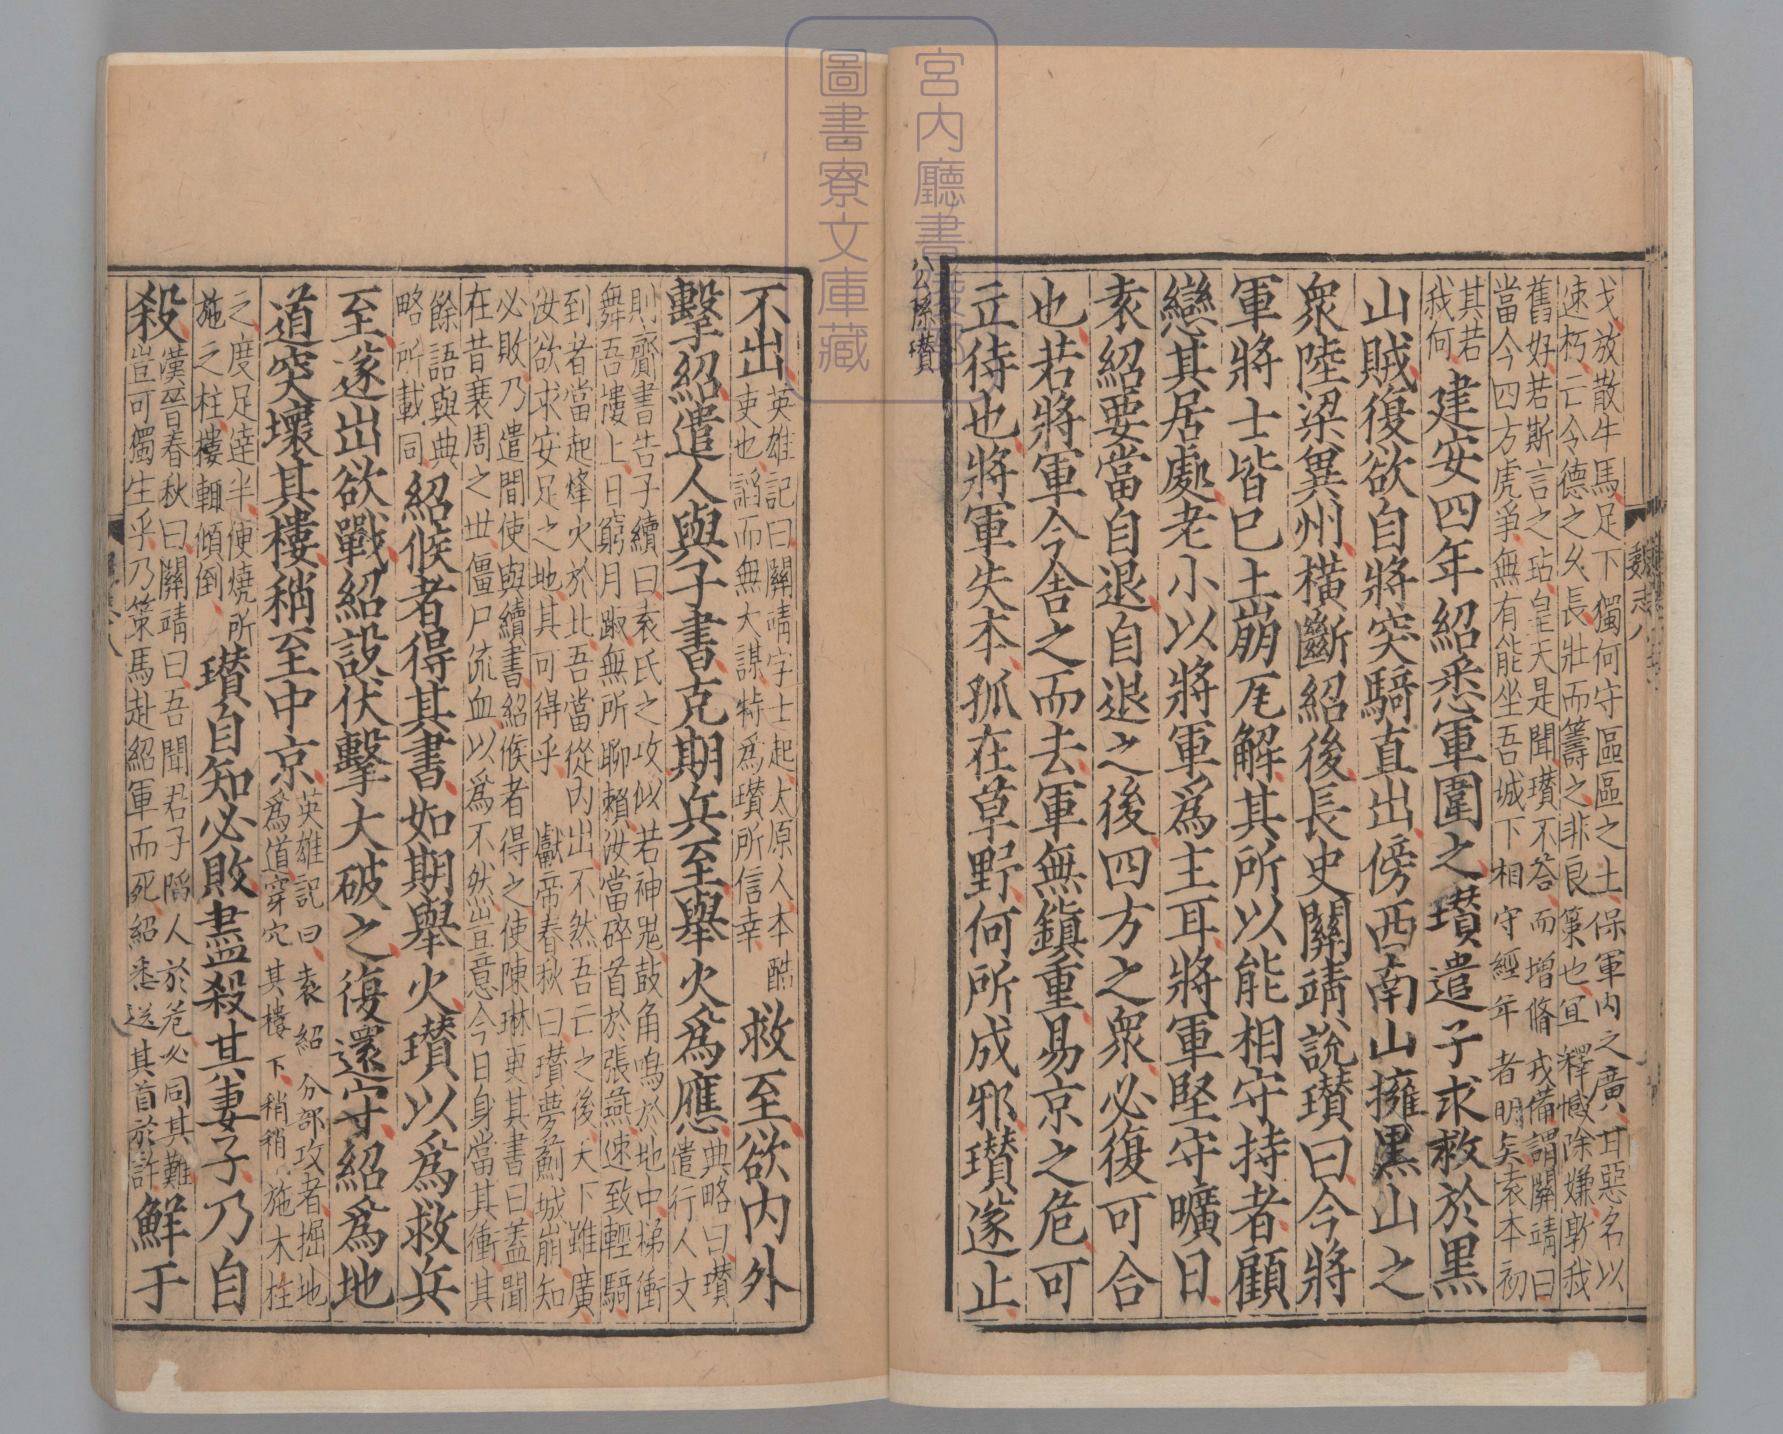 宮內廳書陵部
圖書寮文庫藏
戈放散牛馬足下獨何守區區之土保軍內之廣甘惡名以
速朽亡令德之乆長壯而籌之非良策也宜釋憾除嫌敦我
舊好若斯言之玷皇天是聞瓚不荅而增脩戎備謂關靖曰
當今四方虎爭無有能坐吾城下相守經年者明矣袁本初
其若
我何
建安四年紹悉軍圍之瓚遣子求救於黑
山賊復欲自將突騎直出傍西南山擁黑山之
衆陸梁兾州橫斷紹後長史關靖說瓚曰今將
軍將士皆已土崩瓦解其所以能相守持者顧
戀其居處老小以將軍爲主耳將軍堅守曠日
袁紹要當自退自退之後四方之衆必復可合
也若將軍今舍之而去軍無鎮重易京之危可
立待也將軍失本孤在草野何所成邪瓚遂止
公孫瓚
魏志八
不出
英雄記曰關靖字士起太原人本酷
吏也諂而無大謀特爲瓚所信幸
救至欲內外
擊紹遣人與子書克期兵至舉火爲應
典略曰瓚
遣行人文
則齎書告子續曰袁氏之攻似若神鬼鼓角鳴於地中梯衝
舞吾樓上日窮月踧無所聊賴汝當碎首於張燕速致輕騎
到者當起烽火於北吾當從內出不然吾亡之後天下雖廣
汝欲求安足之地其可得乎 獻帝春秋曰瓚夢薊城崩知
必敗乃遣間使與續書紹候者得之使陳琳更其書曰蓋聞
在昔衰周之世僵尸流血以爲不然豈意今日身當其衝其
餘語與典
略所載同
紹候者得其書如期舉火瓚以爲救兵
至遂出欲戰紹設伏擊大破之復還守紹爲地
道突壞其樓稍至中京
英雄記曰袁紹分部攻者掘地
爲道穿穴其樓下稍稍施木柱
之度足逹半便燒所
施之柱樓輒傾倒
瓚自知必敗盡殺其妻子乃自
殺
漢晉春秋曰關靖曰吾聞君子陷人於危必同其難
豈可獨生乎乃策馬赴紹軍而死紹悉送其首於許
鮮于